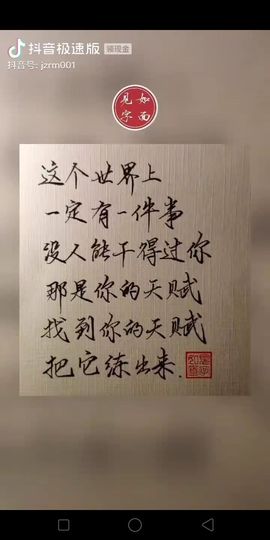 抖音极速版 领现金
抖音号: jzrm001
见字如面
这个世界上
一定有一件事
没人能干得过你
那是你的天赋
找到你的天赋
把它练出来.